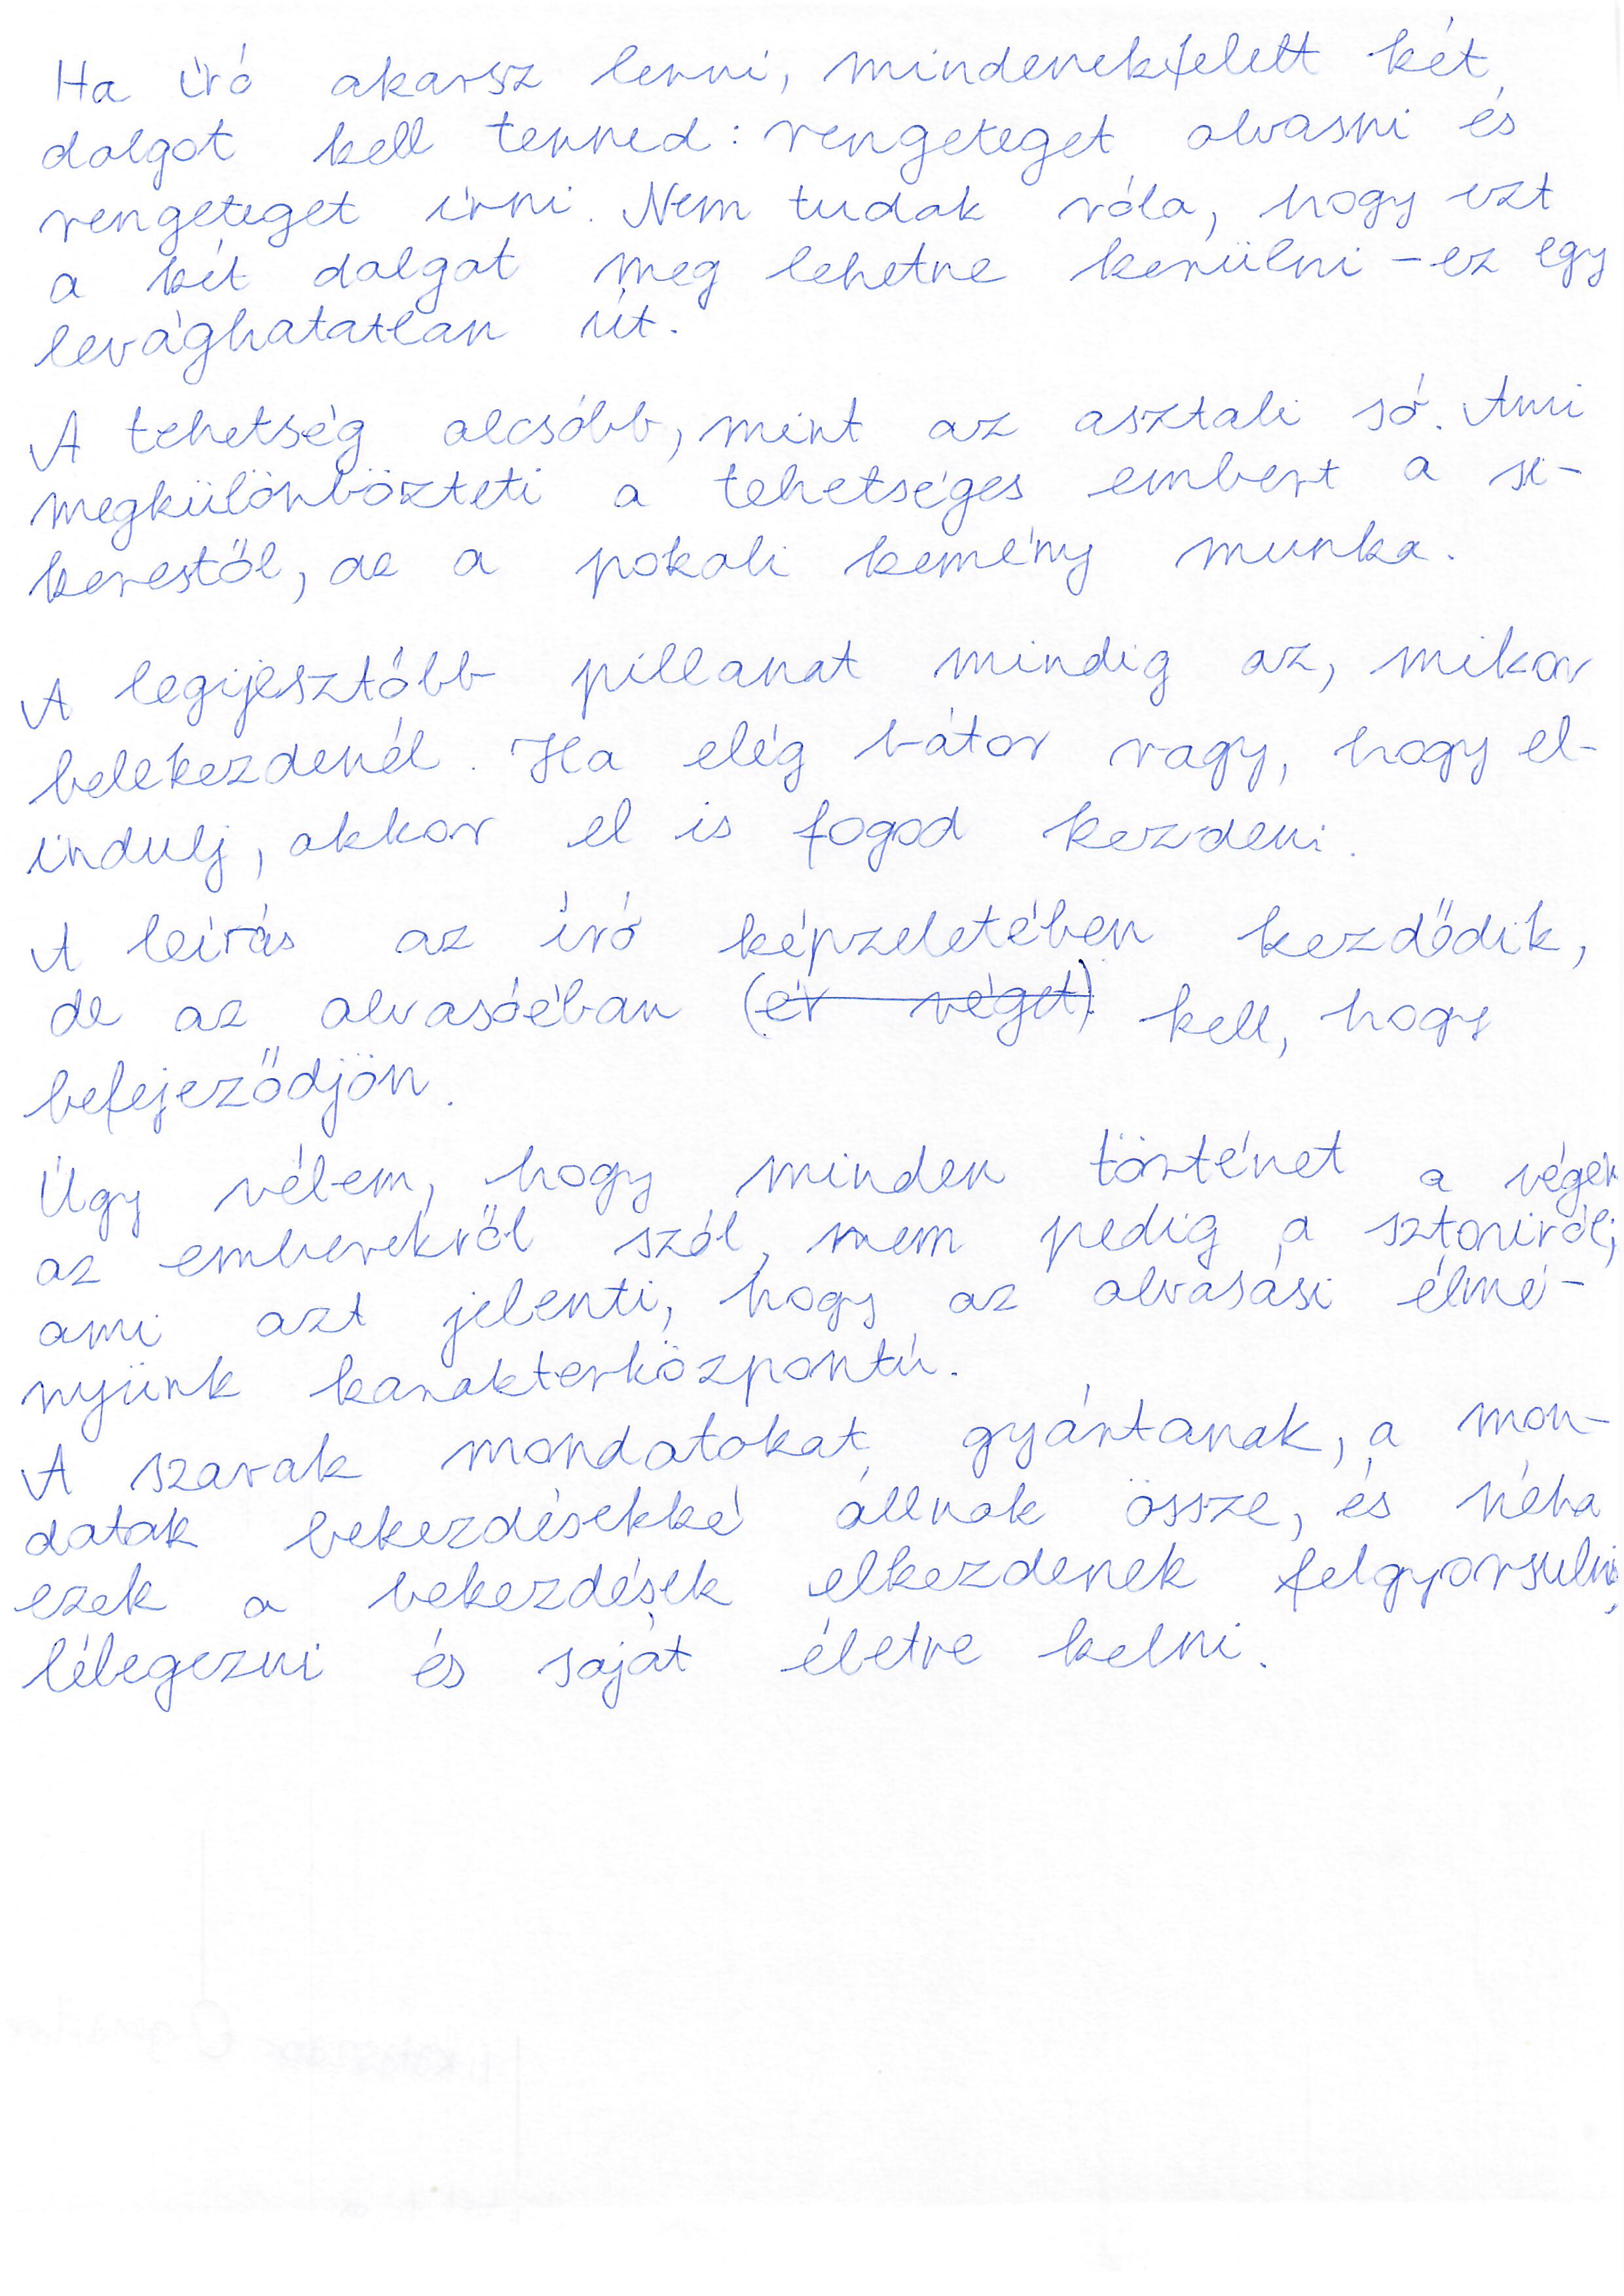 Ha író akarsz lenni, mindenekfelett két
dolgot kell tenned: rengeteget olvasni és
rengeteget írni. Nem tudok róla, hogy ezt
a két dolgot meg lehetne kerülni – ez egy
levághatatlan út.
A tehetség olcsóbb, mint az asztali só. Ami
megkülönbözteti a tehetséges embert a si-
kerestől, az a pokoli kemény munka.
A legijesztőbb pillanat mindig az, mikor
belekezdenél. Ha elég bátor vagy, hogy el-
indulj, akkor el is fogod kezdeni.
A leírás az író képzeletében kezdődik,
de az olvasóéban (ér véget) kell, hogy
befejeződjön.
Úgy vélem, hogy minden történet a végén
az emberekről szól, nem pedig a sztoriról;
ami azt jelenti, hogy az olvasási élmé-
nyünk karakterközpontú.
A szavak mondatokat gyártanak, a mon-
datok bekezdésekké állnak össze, és néha
ezek a bekezdések elkezdenek felgyorsulni,
lélegezni és saját életre kelni.